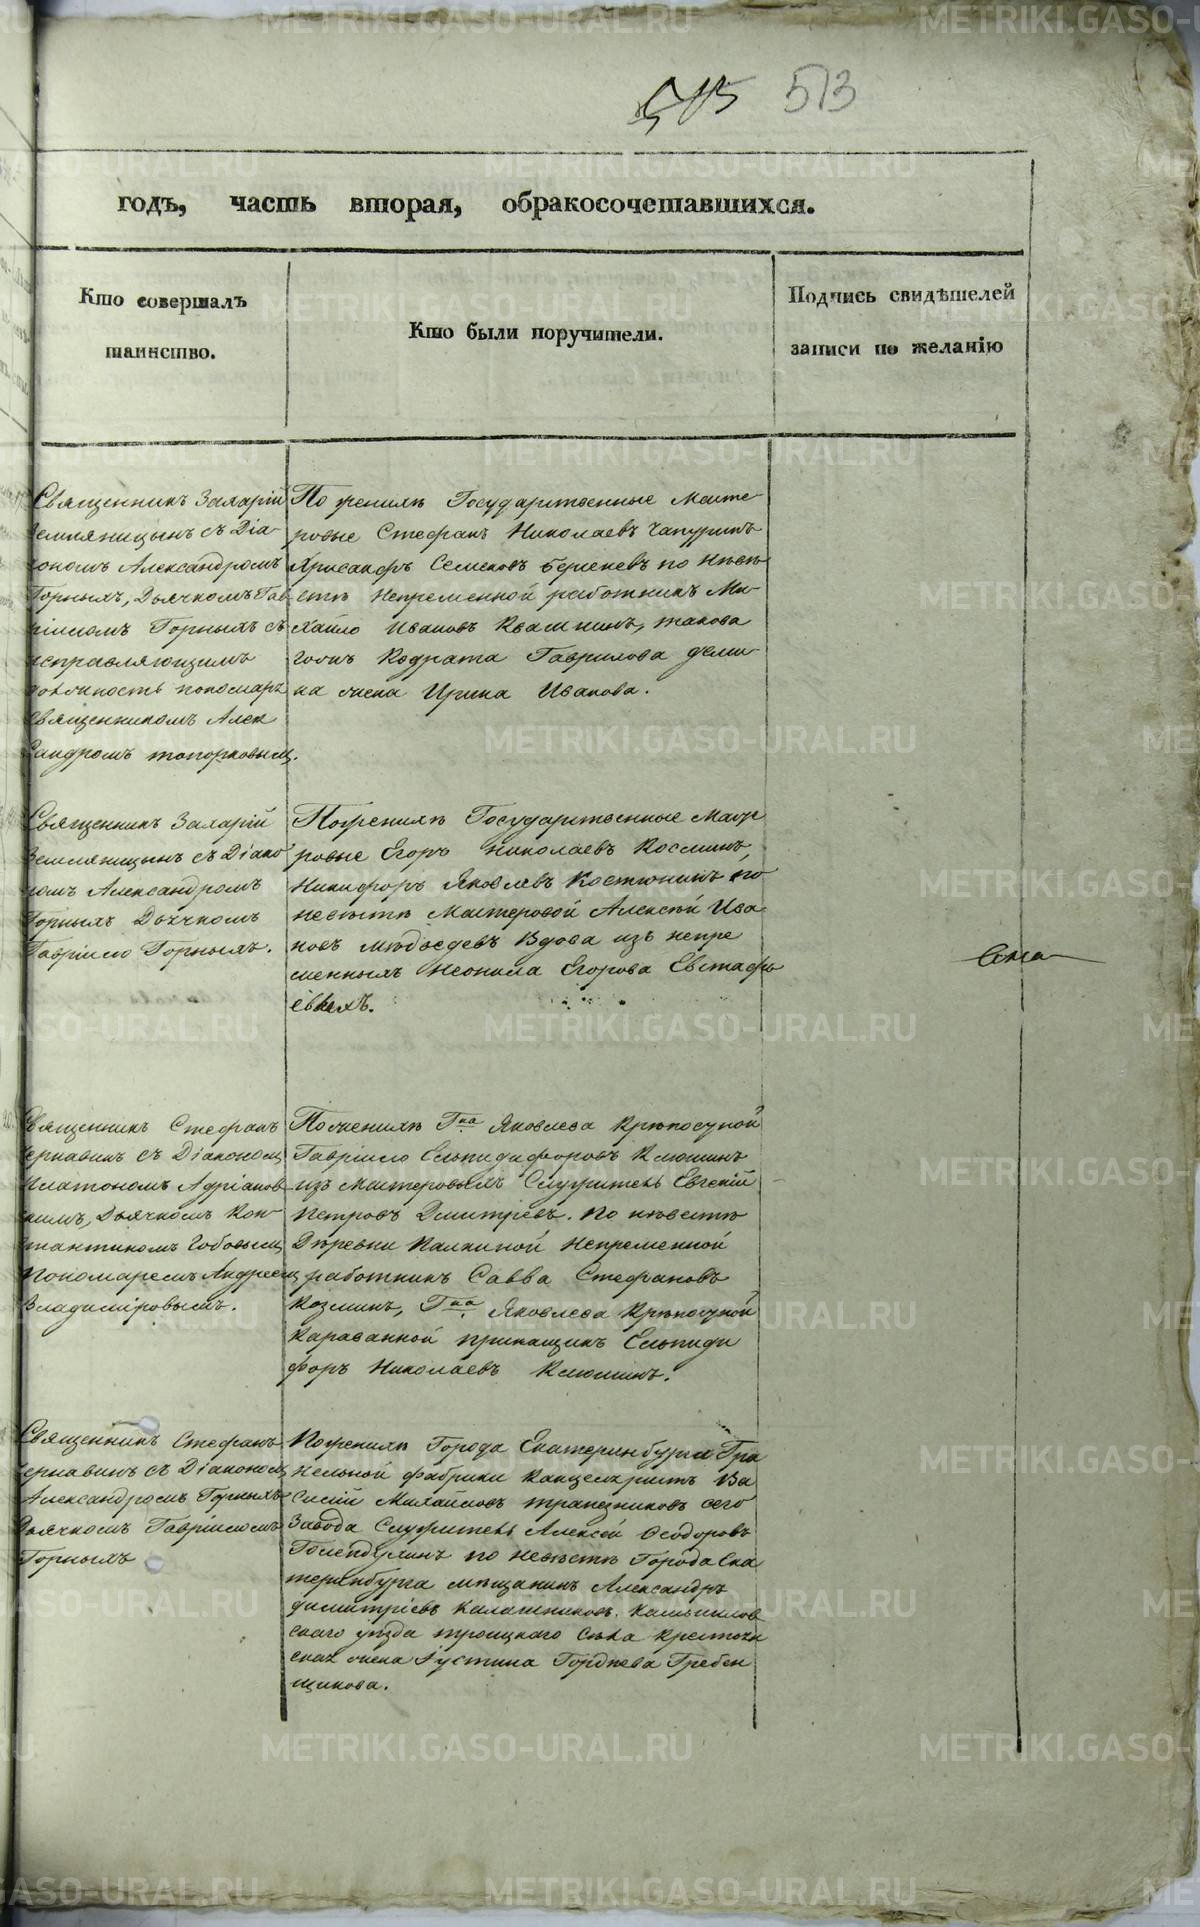 515 513
годъ, часть вторая, обракосочетавшихся.
Кто совершалъ
таинство.
Кто были поручители.
Подпись свидѣтелей
записи по желанію
Священникъ Захарій
Земляницынъ съ Діа-
кономъ Александромъ
Горныхъ, Дьячкомъ Гав
ріиломъ Горныхъ съ
исправляющимъ
должность пономаря
Священникомъ Алек
сандромъ Топорковымъ.
По женихѣ Государственные Масте-
ровые Стефанъ Николаевъ Чапуринъ
Хрисанфъ Семеновъ Береневъ по Невѣ-
стѣ Непременной работникъ Ми-
хайло Ивановъ Квашнинъ, такова
гожъ Кодрата Гаврилова деми-
на жена Ирина Иванова.
Священникъ Захарій
Земляницынъ съ Діако
номъ Александромъ
Горныхъ Дьячкомъ
Гавріило Горныхъ.
По женихѣ Государственные Масте
ровые Егоръ Николаевъ Косминъ,
Никифоръ Яковлевъ Костюнинъ по
невѣстѣ Мастеровой Алексѣй Ива
новъ Медведевъ Вдова изъ непре
менныхъ Неонила Егорова Евстафь
евыхъ.
Священникъ Стефанъ
Чернавинъ съ Діакономъ
Платономъ Адріанов
скимъ, Дьячкомъ Кон-
стантиномъ Гобовымъ
Пономаремъ Андреемъ
Владимировымъ.
По женихѣ Гна Яковлева Крѣпосуной
Гавріило Ельпидифоровъ Клюшинъ
изъ мастеровыхъ Служитель Евгеній
Петровъ Дмитріевъ. По невѣстѣ
Деревни Палкиной Непременной
работникъ Савва Стефановъ
Козминъ, Гна Яковлева Крѣпосуной
Караванной прикащикъ Ельпиди
форъ Николаевъ Клюшинъ.
Священникъ Стефанъ
Чернавинъ съ Діакономъ
Александромъ Горныхъ
Дьячкомъ Гавріиломъ
Горныхъ
По женихѣ Города Екатеринбурга Гра
нельной фабрики Канцеляристъ Ва
силій Михайловъ трапезниковъ сего
Завода Служитель Алексѣй Ѳеодоровъ
Голендухинъ по невѣстѣ Города Ека
теринбурга мѣщанинъ Александръ
димитріевъ Калашниковъ. Камышлов
скаго уѣзда троицкаго Села Крестьян
ская жена Іустина Гордѣева Гребен
щикова.
METRIKI.GASO-URAL.RU